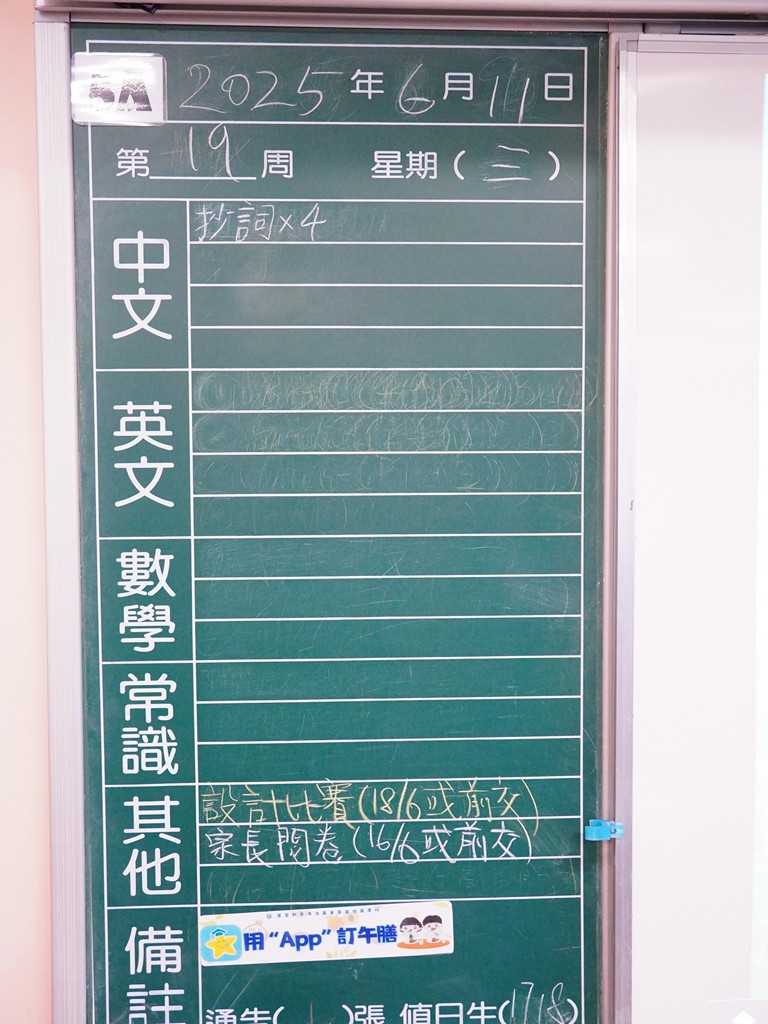 5A 2025年6月11日
第19周 星期(三)
中文 抄詞×4
英文
數學
常識
其他 設計比賽(18/6或前交)
家長問卷(16/6或前交)
備註 用“App”訂午膳
通告( )張 值日生(1718)